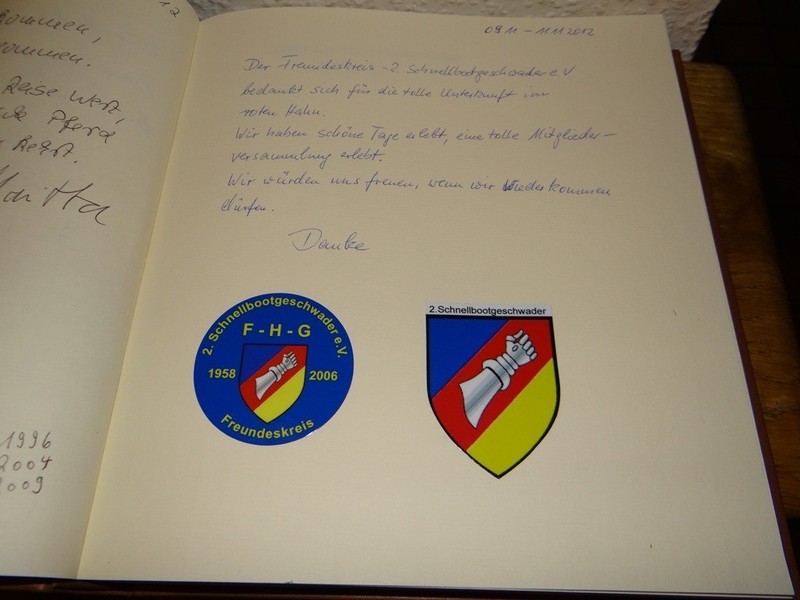 12
ommen,
ommen.
Reise wert,
Pferd
1996
2004
2009
09.11 – 11.11.2012
Der Freundeskreis - 2. Schnellbootgeschwader e.V
bedankt sich für die tolle Unterkunft im
roten Hahn.
Wir haben schöne Tage erlebt, eine tolle Mitglieder –
versammlung erlebt.
Wir würden uns freuen, wenn wir Wiederkommen
dürfen.
Danke
2. Schnellbootgeschwader e.V.
F - H - G
1958 2006
Freundeskreis
2.Schnellbootgeschwader